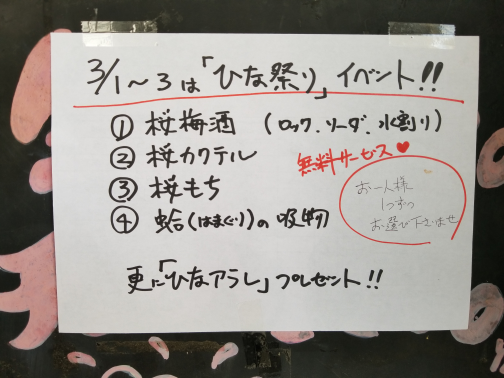 3/1～3は「ひな祭り」イベント!!
① 桜梅酒 (ロック、ソーダ、水割り)
② 桜カクテル
無料サービス♥
③ 桜もち
④ 蛤(はまぐり)の吸物
お一人様
1つずつ
お選び下さいませ
更に「ひなアラレ」プレゼント!!